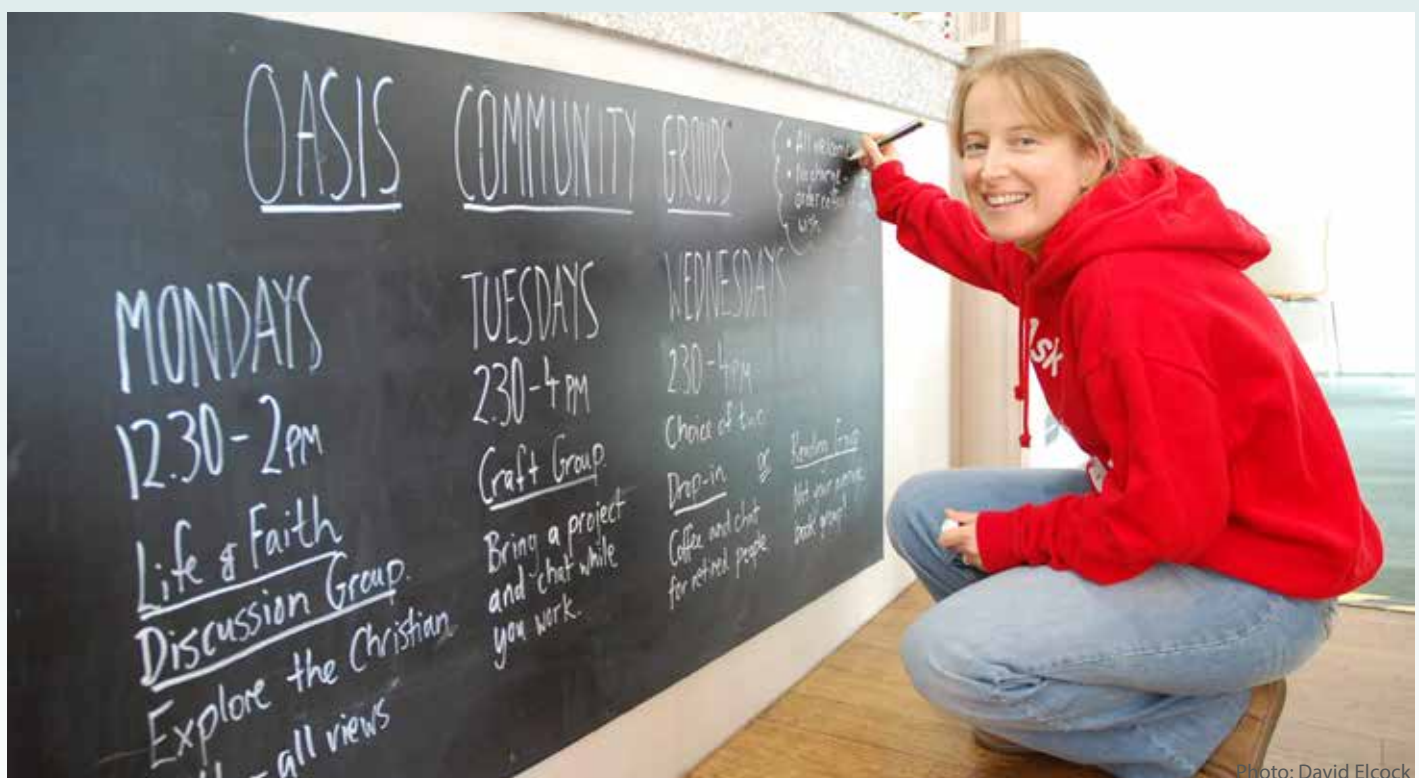 OASIS COMMUNITY GROUPS
• All welcome
• No charge -
order coffee if
wish
MONDAYS
12.30 - 2PM
Life & Faith
Discussion Group.
Explore the Christian
- all views
TUESDAYS
2.30 - 4 PM
Craft Group.
Bring a project
and chat while
you work.
WEDNESDAYS
2.30 - 4PM.
Choice of two
Drop-in or
Coffee and chat
for retired people
Reading Group
Not your average
book group!
Ask
Photo: David Elcock